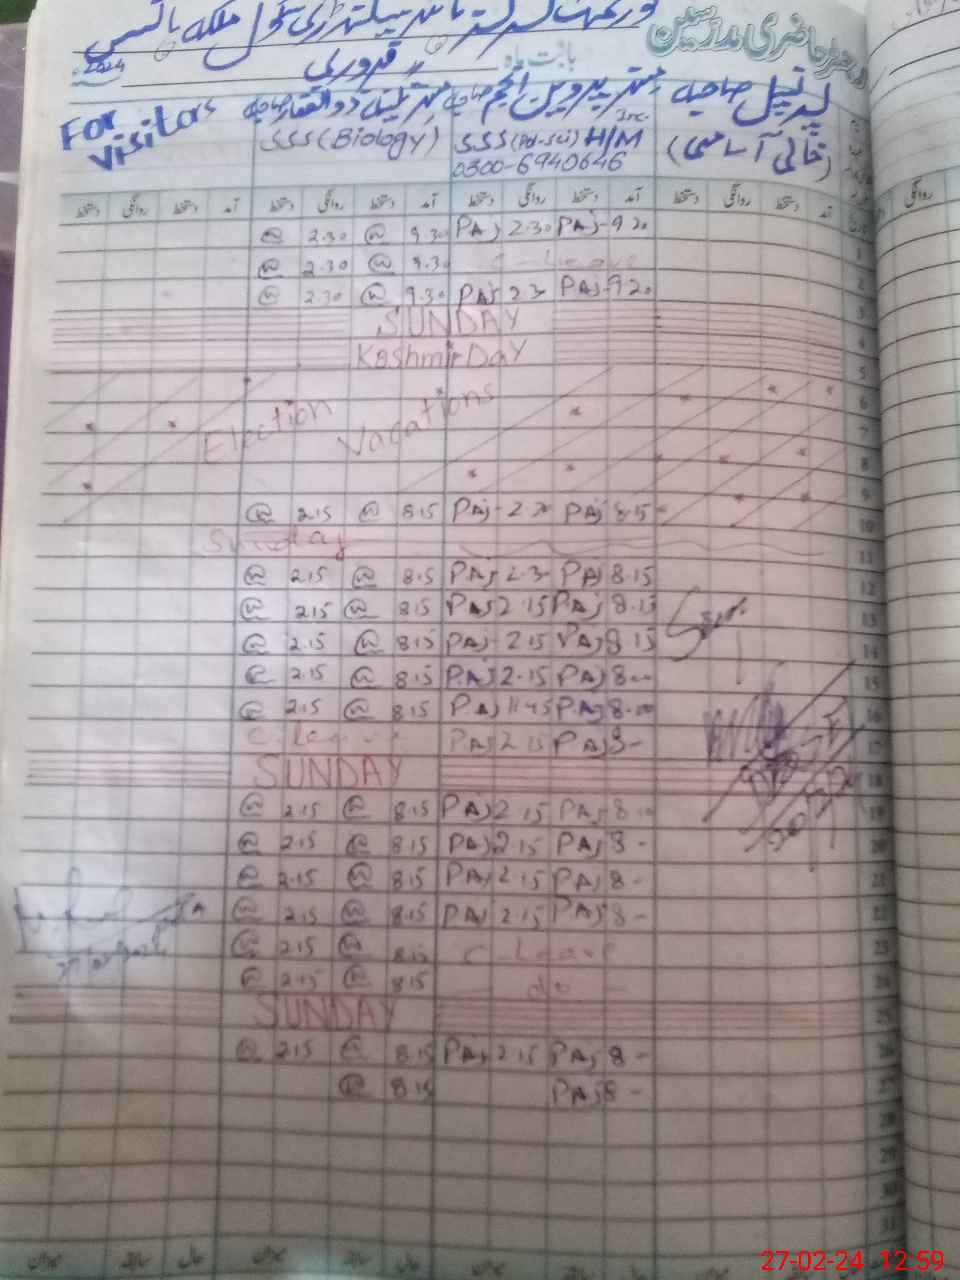 رجسٹر حاضری مدرسین
بابت ماہ فروری 2024
پرنسپل صاحبہ
(خالی آسامی)
مسز پروین انجم صاحبہ
SSS (Ph-Sci) H/M
0300-6940646
SSS (Biology)
For Visitors
آمد دستخط روانگی دستخط آمد دستخط روانگی دستخط آمد دستخط روانگی دستخط آمد دستخط روانگی دستخط
1 @ 2.30 @ 9.30 PAj 2.30 PAj 9.20
2 @ 2.30 @ 9.30 C-Leave
3 @ 2.30 @ 9.30 PAj 2.30 PAj 9.20
4 SUNDAY
5 Kashmir Day
6
7 Election Vacations
8
9
10 @ 2.15 @ 8.15 PAj 2.30 PAj 8.15
11 Sunday
12 @ 2.15 @ 8.15 PAj 2.30 PAj 8.15
13 @ 2.15 @ 8.15 PAj 2.15 PAj 8.15
14 @ 2.15 @ 8.15 PAj 2.15 PAj 8.15
15 @ 2.15 @ 8.15 PAj 2.15 PAj 8.00
16 @ 2.15 @ 8.15 PAj 11.45 PAj 8.00
17 C-Leave PAj 2.15 PAj 8-
18 SUNDAY
19 @ 2.15 @ 8.15 PAj 2.15 PAj 8.00
20 @ 2.15 @ 8.15 PAj 2.15 PAj 8-
21 @ 2.15 @ 8.15 PAj 2.15 PAj 8-
22 @ 2.15 @ 8.15 PAj 2.15 PAj 8-
23 @ 2.15 @ 8.15 C-Leave
24 @ 2.15 @ 8.15 do
25 SUNDAY
26 @ 2.15 @ 8.15 PAj 2.15 PAj 8-
27 @ 8.15 PAj 8-
28
29
30
31
میزان سابقہ حال میزان سابقہ حال میزان سابقہ حال میزان سابقہ حال
27-02-24 12:59